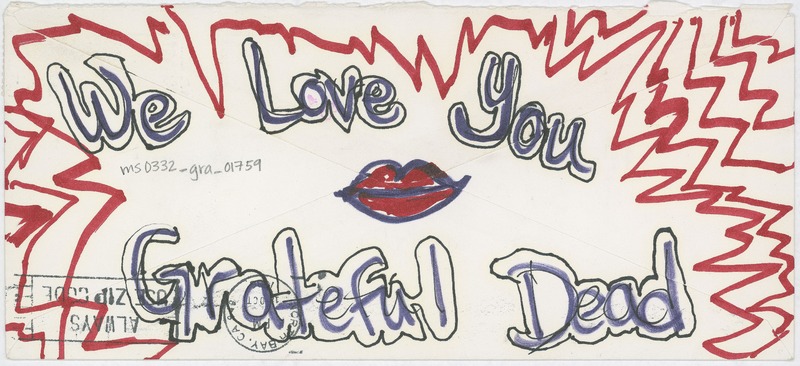 We Love You
ms0332_gra_01759
Grateful Dead
ALWAYS
USE ZIP CODE
OCT